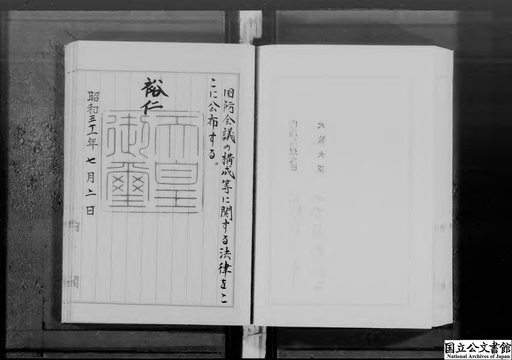 国防会議の構成等に関する法律をこ
こに公布する。
裕仁
天皇
御璽
昭和三十一年七月二日
国立公文書館
National Archives of Japan